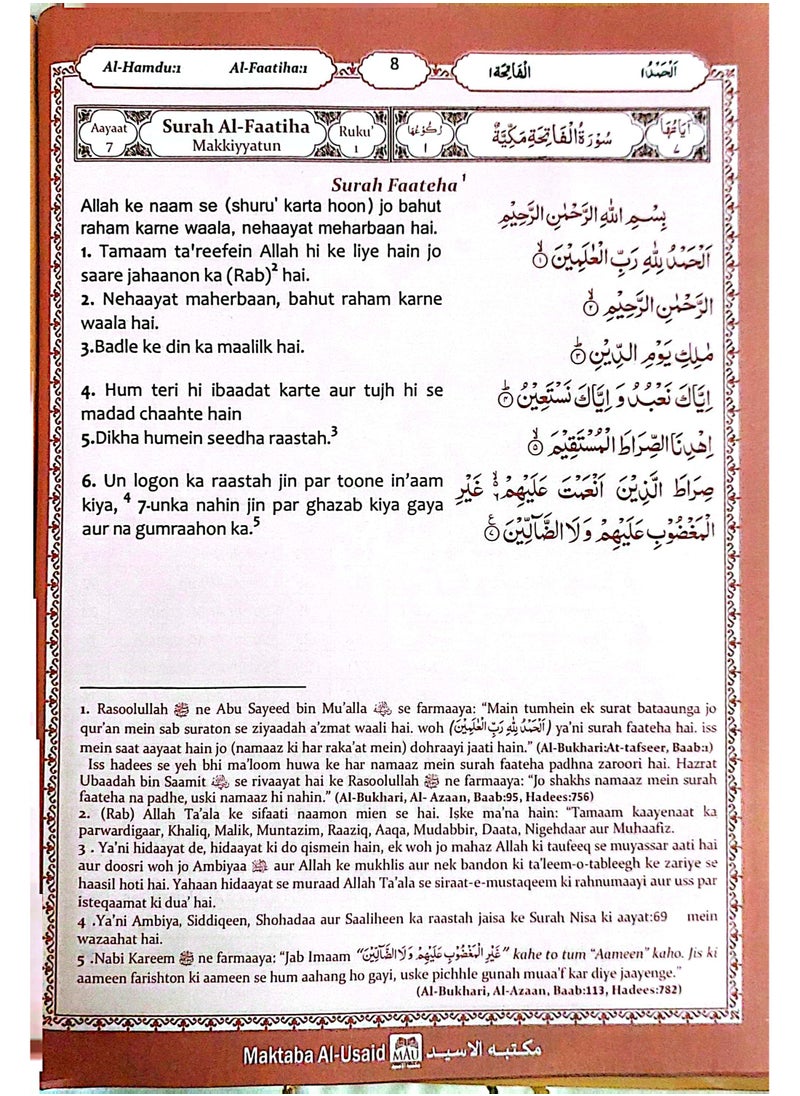 Al-Hamdu:1 Al-Faatiha:1 8 الفَاتِحَة۱ اَلْحَمْدُ۱
Aayaat 7 Surah Al-Faatiha Makkiyyatun Ruku' 1 رُكُوْعُهَا ۱ سُوْرَةُ الْفَاتِحَةِ مَكِّيَّةٌ اٰيَاتُهَا ۷
Surah Faateha 1
Allah ke naam se (shuru' karta hoon) jo bahut
raham karne waala, nehaayat meharbaan hai.
بِسْمِ اللّٰهِ الرَّحْمٰنِ الرَّحِيْمِ
1. Tamaam ta'reefein Allah hi ke liye hain jo
saare jahaanon ka (Rab)2 hai.
اَلْحَمْدُ لِلّٰهِ رَبِّ الْعٰلَمِيْنَ ۙ۱
2. Nehaayat maherbaan, bahut raham karne
waala hai.
الرَّحْمٰنِ الرَّحِيْمِ ۙ۲
3.Badle ke din ka maalilk hai.
مٰلِكِ يَوْمِ الدِّيْنِ ؕ۳
4. Hum teri hi ibaadat karte aur tujh hi se
madad chaahte hain
اِيَّاكَ نَعْبُدُ وَ اِيَّاكَ نَسْتَعِيْنُ ؕ۴
5.Dikha humein seedha raastah.3
اِهْدِنَا الصِّرَاطَ الْمُسْتَقِيْمَ ۙ۵
6. Un logon ka raastah jin par toone in'aam
kiya, 4 7-unka nahin jin par ghazab kiya gaya
aur na gumraahon ka.5
صِرَاطَ الَّذِيْنَ اَنْعَمْتَ عَلَيْهِمْ ۙ۶ غَيْرِ
الْمَغْضُوْبِ عَلَيْهِمْ وَ لَا الضَّآلِّيْنَ ۠۷
1. Rasoolullah ﷺ ne Abu Sayeed bin Mu'alla se farmaaya: "Main tumhein ek surat bataaunga jo
qur'an mein sab suraton se ziyaadah a'zmat waali hai. woh (اَلْحَمْدُ لِلّٰهِ رَبِّ الْعٰلَمِيْنَ) ya'ni surah fateha hai. iss
mein saat aayaat hain jo (namaaz ki har raka'at mein) dohraayi jaati hain." (Al-Bukhari:At-tafseer, Baab:1)
Iss hadees se yeh bhi ma'loom huwa ke har namaaz mein surah faateha padhna zaroori hai. Hazrat
Ubaadah bin Saamit se rivaayat hai ke Rasoolullah ﷺ ne farmaaya: "Jo shakhs namaaz mein surah
faateha na padhe, uski namaaz hi nahin." (Al-Bukhari, Al- Azaan, Baab:95, Hadees:756)
2. (Rab) Allah Ta'ala ke sifaati naamon mien se hai. Iske ma'na hain: "Tamaam kaayenaat ka
parwardigaar, Khaliq, Malik, Muntazim, Raaziq, Aaqa, Mudabbir, Daata, Nigehdaar aur Muhaafiz.
3 . Ya'ni hidaayat de, hidaayat ki do qismein hain, ek woh jo mahaz Allah ki taufeeq se muyassar aati hai
aur doosri woh jo Ambiyaa aur Allah ke mukhlis aur nek bandon ki ta'leem-o-tableegh ke zariye se
haasil hoti hai. Yahaan hidaayat se muraad Allah Ta'ala se siraat-e-mustaqeem ki rahnumaayi aur uss par
isteqaamat ki dua' hai.
4 .Ya'ni Ambiya, Siddiqeen, Shohadaa aur Saaliheen ka raastah jaisa ke Surah Nisa ki aayat:69 mein
wazaahat hai.
5 .Nabi Kareem ﷺ ne farmaaya: "Jab Imaam "غَيْرِ الْمَغْضُوْبِ عَلَيْهِمْ وَ لَا الضَّآلِّيْنَ" kahe to tum "Aameen" kaho. Jis ki
aameen farishton ki aameen se hum aahang ho gayi, uske pichhle gunah muaa'f kar diye jaayenge."
(Al-Bukhari, Al-Azaan, Baab:113, Hadees:782)
Maktaba Al-Usaid MAU مكتبه الاسيد